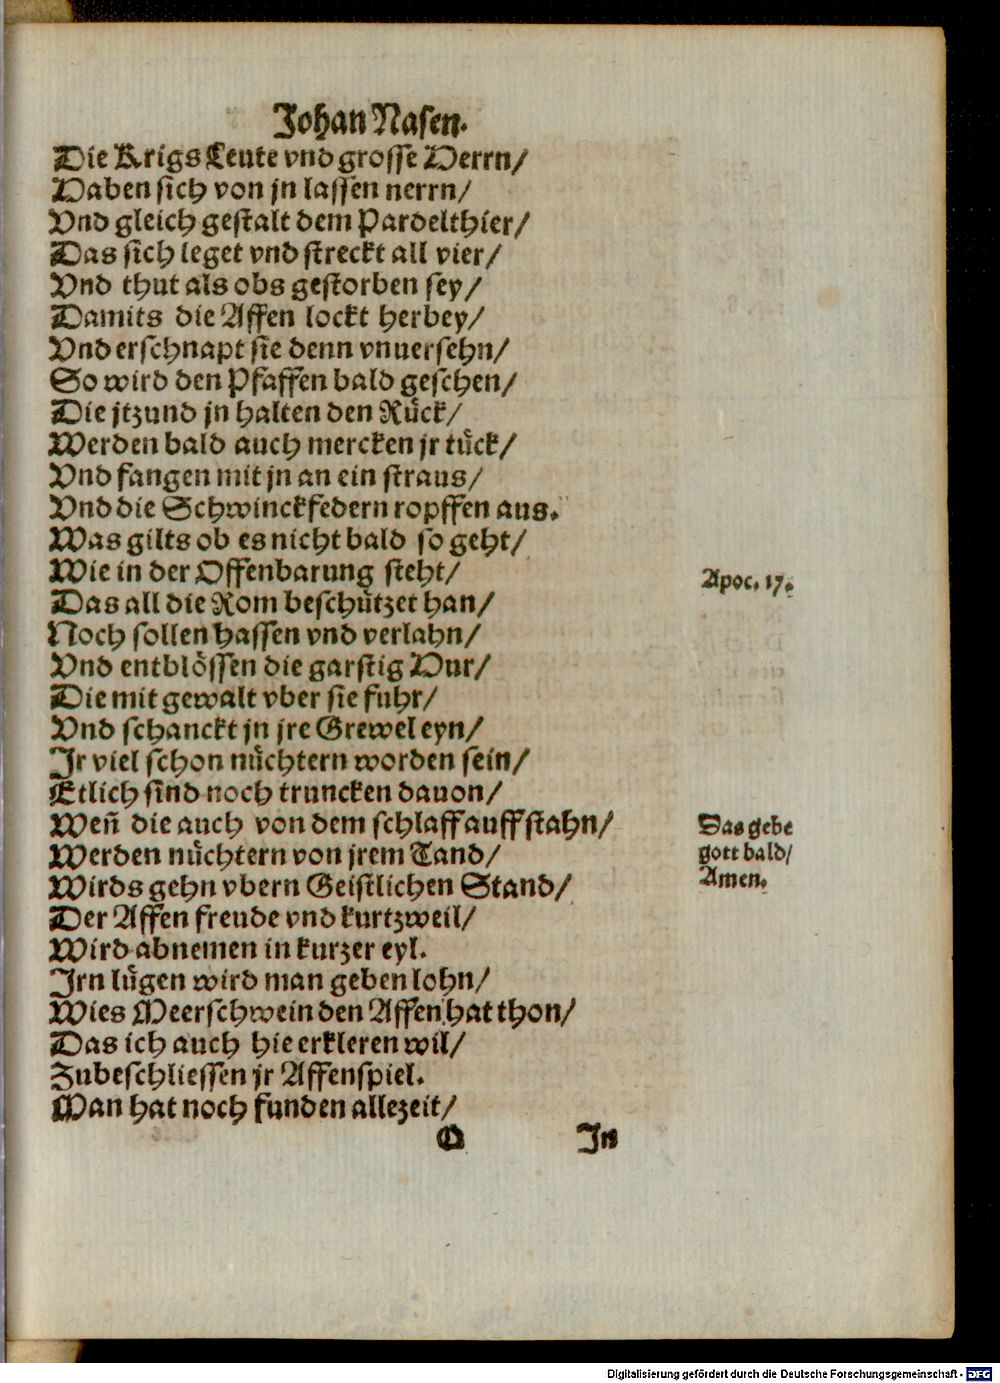 Johan Nasen.
Die Krigs Leute vnd grosse Herrn/
Haben sich von jn lassen nerrn/
Vnd gleich gestalt dem Pardelthier/
Das sich leget vnd streckt all vier/
Vnd thut als obs gestorben sey/
Damits die Affen lockt herbey/
Vnd erschnapt sie denn vnuersehn/
So wird den Pfaffen bald geschen/
Die jtzund jn halten den Rück/
Werden bald auch mercken jr tück/
Vnd fangen mit jn an ein straus/
Vnd die Schwinckfedern ropffen aus.
Was gilts ob es nicht bald so geht/
Wie in der Offenbarung steht/
Apoc. 17.
Das all die Rom beschützet han/
Noch sollen hassen vnd verlahn/
Vnd entblössen die garstig Hur/
Die mit gewalt vber sie fuhr/
Vnd schanckt jn jre Grewel eyn/
Jr viel schon nüchtern worden sein/
Etlich sind noch truncken dauon/
Weñ die auch von dem schlaff auffstahn/
Das gebe
gott bald/
Amen.
Werden nüchtern von jrem Tand/
Wirds gehn vbern Geistlichen Stand/
Der Affen freude vnd kurtzweil/
Wird abnemen in kurzer eyl.
Jrn lügen wird man geben lohn/
Wies Meerschwein den Affen hat thon/
Das ich auch hie erkleren wil/
Zubeschliessen jr Affenspiel.
Man hat noch funden allezeit/
O Jn
Digitalisierung gefördert durch die Deutsche Forschungsgemeinschaft - DFG